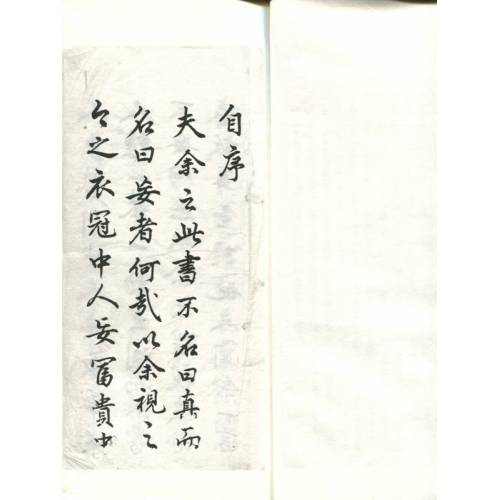 自序
夫余之此書不名曰真而
名曰妄者何哉以余視之
今之衣冠中人妄富貴中